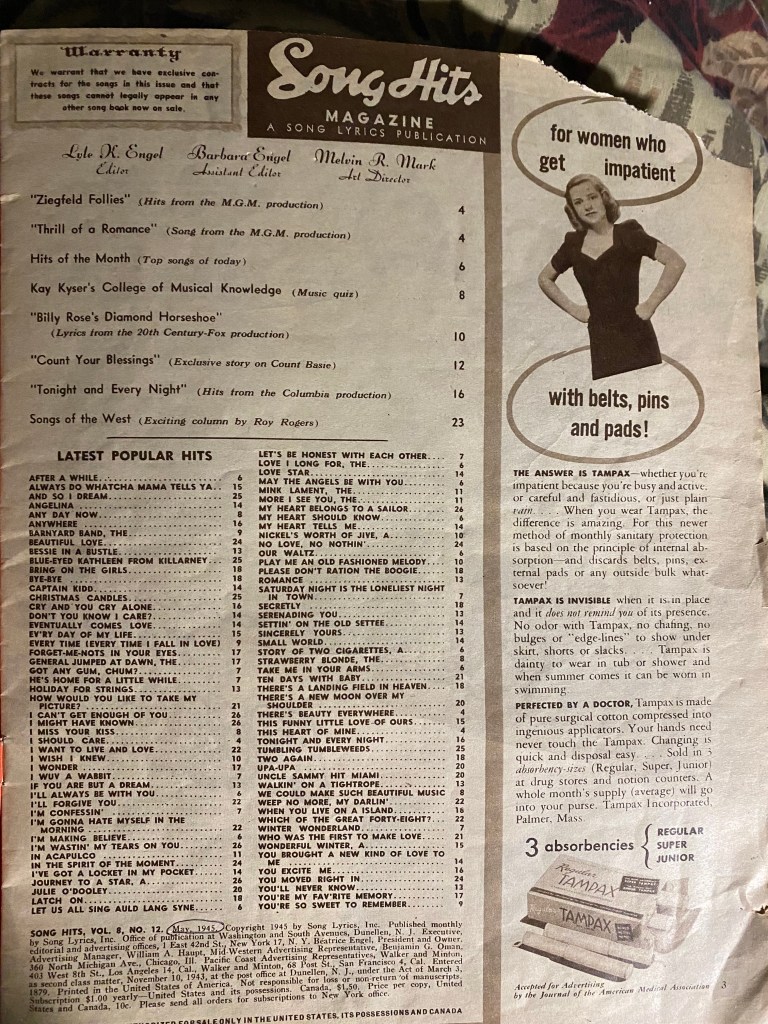 Warranty
We warrant that we have exclusive con-
tracts for the songs in this issue and that
these songs cannot legally appear in any
other song book now on sale.
Song Hits
MAGAZINE
A SONG LYRICS PUBLICATION
Lyle K. Engel
Editor
Barbara Engel
Assistant Editor
Melvin R. Mark
Art Director
"Ziegfeld Follies" (Hits from the M.G.M. production) 4
"Thrill of a Romance" (Song from the M.G.M. production) 4
Hits of the Month (Top songs of today) 6
Kay Kyser's College of Musical Knowledge (Music quiz) 8
"Billy Rose's Diamond Horseshoe"
(Lyrics from the 20th Century-Fox production) 10
"Count Your Blessings" (Exclusive story on Count Basie) 12
"Tonight and Every Night" (Hits from the Columbia production) 16
Songs of the West (Exciting column by Roy Rogers) 23
LATEST POPULAR HITS
AFTER A WHILE 6
ALWAYS DO WHATCHA MAMA TELLS YA 15
AND SO I DREAM 25
ANGELINA 14
ANY DAY NOW 8
ANYWHERE 16
BARNYARD BAND, THE 9
BEAUTIFUL LOVE 24
BESSIE IN A BUSTLE 13
BLUE-EYED KATHLEEN FROM KILLARNEY 25
BRING ON THE GIRLS 18
BYE-BYE 18
CAPTAIN KIDD 14
CHRISTMAS CANDLES 25
CRY AND YOU CRY ALONE 16
DON'T YOU KNOW I CARE? 14
EVENTUALLY COMES LOVE 14
EV'RY DAY OF MY LIFE 15
EVERY TIME (EVERY TIME I FALL IN LOVE) 9
FORGET-ME-NOTS IN YOUR EYES 17
GENERAL JUMPED AT DAWN, THE 17
GOT ANY GUM, CHUM? 7
HE'S HOME FOR A LITTLE WHILE 7
HOLIDAY FOR STRINGS 13
HOW WOULD YOU LIKE TO TAKE MY
PICTURE? 21
I CAN'T GET ENOUGH OF YOU 26
I MIGHT HAVE KNOWN 26
I MISS YOUR KISS 8
I SHOULD CARE 4
I WANT TO LIVE AND LOVE 22
I WISH I KNEW 10
I WONDER 17
I WUV A WABBIT 7
IF YOU ARE BUT A DREAM 13
I'LL ALWAYS BE WITH YOU 6
I'LL FORGIVE YOU 22
I'M CONFESSIN' 7
I'M GONNA HATE MYSELF IN THE
MORNING 22
I'M MAKING BELIEVE 6
I'M WASTIN' MY TEARS ON YOU 26
IN ACAPULCO 11
IN THE SPIRIT OF THE MOMENT 24
I'VE GOT A LOCKET IN MY POCKET 14
JOURNEY TO A STAR, A 26
JULIE O'DOOLEY 20
LATCH ON 18
LET US ALL SING AULD LANG SYNE 6
LET'S BE HONEST WITH EACH OTHER 7
LOVE I LONG FOR, THE 6
LOVE STAR 14
MAY THE ANGELS BE WITH YOU 6
MINK LAMENT, THE 11
MORE I SEE YOU, THE 11
MY HEART BELONGS TO A SAILOR 26
MY HEART SHOULD KNOW 6
MY HEART TELLS ME 14
NICKEL'S WORTH OF JIVE, A 10
NO LOVE, NO NOTHIN' 24
OUR WALTZ 6
PLAY ME AN OLD FASHIONED MELODY 10
PLEASE DON'T RATION THE BOOGIE 18
ROMANCE 13
SATURDAY NIGHT IS THE LONELIEST NIGHT
IN TOWN 7
SECRETLY 18
SERENADING YOU 13
SETTIN' ON THE OLD SETTEE 14
SINCERELY YOURS 13
SMALL WORLD 14
STORY OF TWO CIGARETTES, A 6
STRAWBERRY BLONDE, THE 8
TAKE ME IN YOUR ARMS 6
TEN DAYS WITH BABY 21
THERE'S A LANDING FIELD IN HEAVEN 18
THERE'S A NEW MOON OVER MY
SHOULDER 20
THERE'S BEAUTY EVERYWHERE 4
THIS FUNNY LITTLE LOVE OF OURS 15
THIS HEART OF MINE 4
TONIGHT AND EVERY NIGHT 16
TUMBLING TUMBLEWEEDS 25
TWO AGAIN 18
UPA-UPA 20
UNCLE SAMMY HIT MIAMI 20
WALKIN' ON A TIGHTROPE 13
WE COULD MAKE SUCH BEAUTIFUL MUSIC 8
WEEP NO MORE, MY DARLIN' 22
WHEN YOU LIVE ON A ISLAND 16
WHICH OF THE GREAT FORTY-EIGHT? 22
WINTER WONDERLAND 7
WHO WAS THE FIRST TO MAKE LOVE 21
WONDERFUL WINTER, A 15
YOU BROUGHT A NEW KIND OF LOVE TO
ME 14
YOU EXCITE ME 16
YOU MOVED RIGHT IN 24
YOU'LL NEVER KNOW 13
YOU'RE MY FAV'RITE MEMORY 17
YOU'RE SO SWEET TO REMEMBER 9
SONG HITS, VOL. 8, NO. 12, May, 1945. Copyright 1945 by Song Lyrics, Inc. Published monthly
by Song Lyrics, Inc. Office of publication at Washington and South Avenues, Dunellen, N. J. Executive,
editorial and advertising offices, 1 East 42nd St., New York 17, N. Y. Beatrice Engel, President and Owner,
Advertising Manager, William A. Haupt, Mid-Western Advertising Representative, Benjamin G. Quan,
360 North Michigan Ave., Chicago, Ill. Pacific Coast Advertising Representatives, Walker and Minton,
403 West 8th St., Los Angeles 14, Cal., Walker and Minton, 68 Post St., San Francisco 4, Cal. Entered
as second class matter, November 10, 1943, at the post office at Dunellen, N. J., under the Act of March 3,
1879. Printed in the United States of America. Not responsible for loss or non-return of manuscripts.
Subscription $1.00 yearly—United States and its possessions. Canada, $1.50. Price per copy, United
States and Canada, 10c. Please send all orders for subscriptions to New York office.
FOR SALE ONLY IN THE UNITED STATES, ITS POSSESSIONS AND CANADA
for women who
get impatient
with belts, pins
and pads!
THE ANSWER IS TAMPAX—whether you're
impatient because you're busy and active,
or careful and fastidious, or just plain
vain. . . . When you wear Tampax, the
difference is amazing. For this newer
method of monthly sanitary protection
is based on the principle of internal ab-
sorption—and discards belts, pins, ex-
ternal pads or any outside bulk what-
soever!
TAMPAX IS INVISIBLE when it is in place
and it does not remind you of its presence.
No odor with Tampax, no chafing, no
bulges or "edge-lines" to show under
skirt, shorts or slacks. . . . Tampax is
dainty to wear in tub or shower and
when summer comes it can be worn in
swimming.
PERFECTED BY A DOCTOR, Tampax is made
of pure surgical cotton compressed into
ingenious applicators. Your hands need
never touch the Tampax. Changing is
quick and disposal easy. . . . Sold in 3
absorbency-sizes (Regular, Super, Junior)
at drug stores and notion counters. A
whole month's supply (average) will go
into your purse. Tampax Incorporated,
Palmer, Mass.
3 absorbencies
REGULAR
SUPER
JUNIOR
Regular
TAMPAX
TAMPAX
Accepted for Advertising
by the Journal of the American Medical Association
3